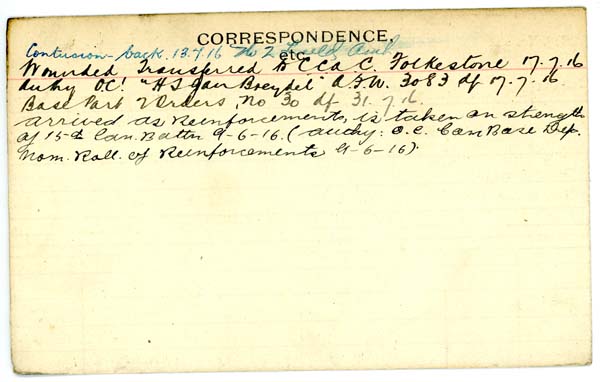 CORRESPONDENCE,
etc.
Contusion - back. 13.7.16 No 2 Field Amb
Wounded, Transferred to C C A C. Folkestone 17.7.16
Authy O.C! "H S Jan Breydel" A.F.W. 3083 df 17.7.16.
Base Part 2 Orders, No 30 df 31.7.16.
arrived as Reinforcements, is taken on strength
of 15th Can. Battn 9-6-16. (Authy: O.C. Can Base Dep.
Nom. Roll. of Reinforcements 9-6-16).